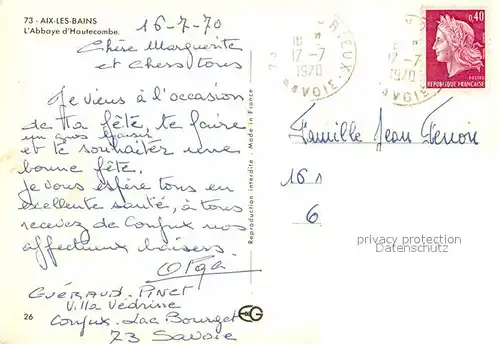 73 - AIX-LES-BAINS
L'Abbaye d'Hautecombe.
16-7-70
Chère Marguerite
et Chers tous
Je viens à l'occasion
de ta fête, te faire
un gros baiser
et te souhaiter une
bonne fête.
Je vous espère tous en
excellente santé, à tous
recevez de Conjux nos
affectueux baisers.
Olga
GUÉRAUD-PINET
Villa Védrine
Conjux - Lac Bourget
73 Savoie
26
EG
Reproduction interdite - Made in France
RIEUX
17-7
1970
SAVOIE
17-7
1970
0,40
POSTES
REPUBLIQUE FRANÇAISE
Famille Jean
16
6
privacy protection
watermark